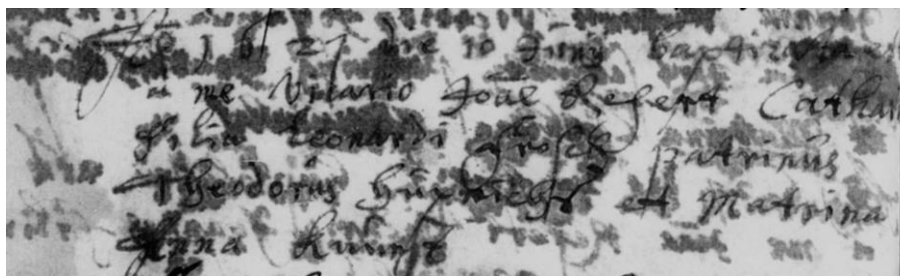 die 10 Junij baptizata
a me Vicario Joae Refert Cathar
filia Leonardi Frosch patrinus
Theodorus et Matrina
Anna